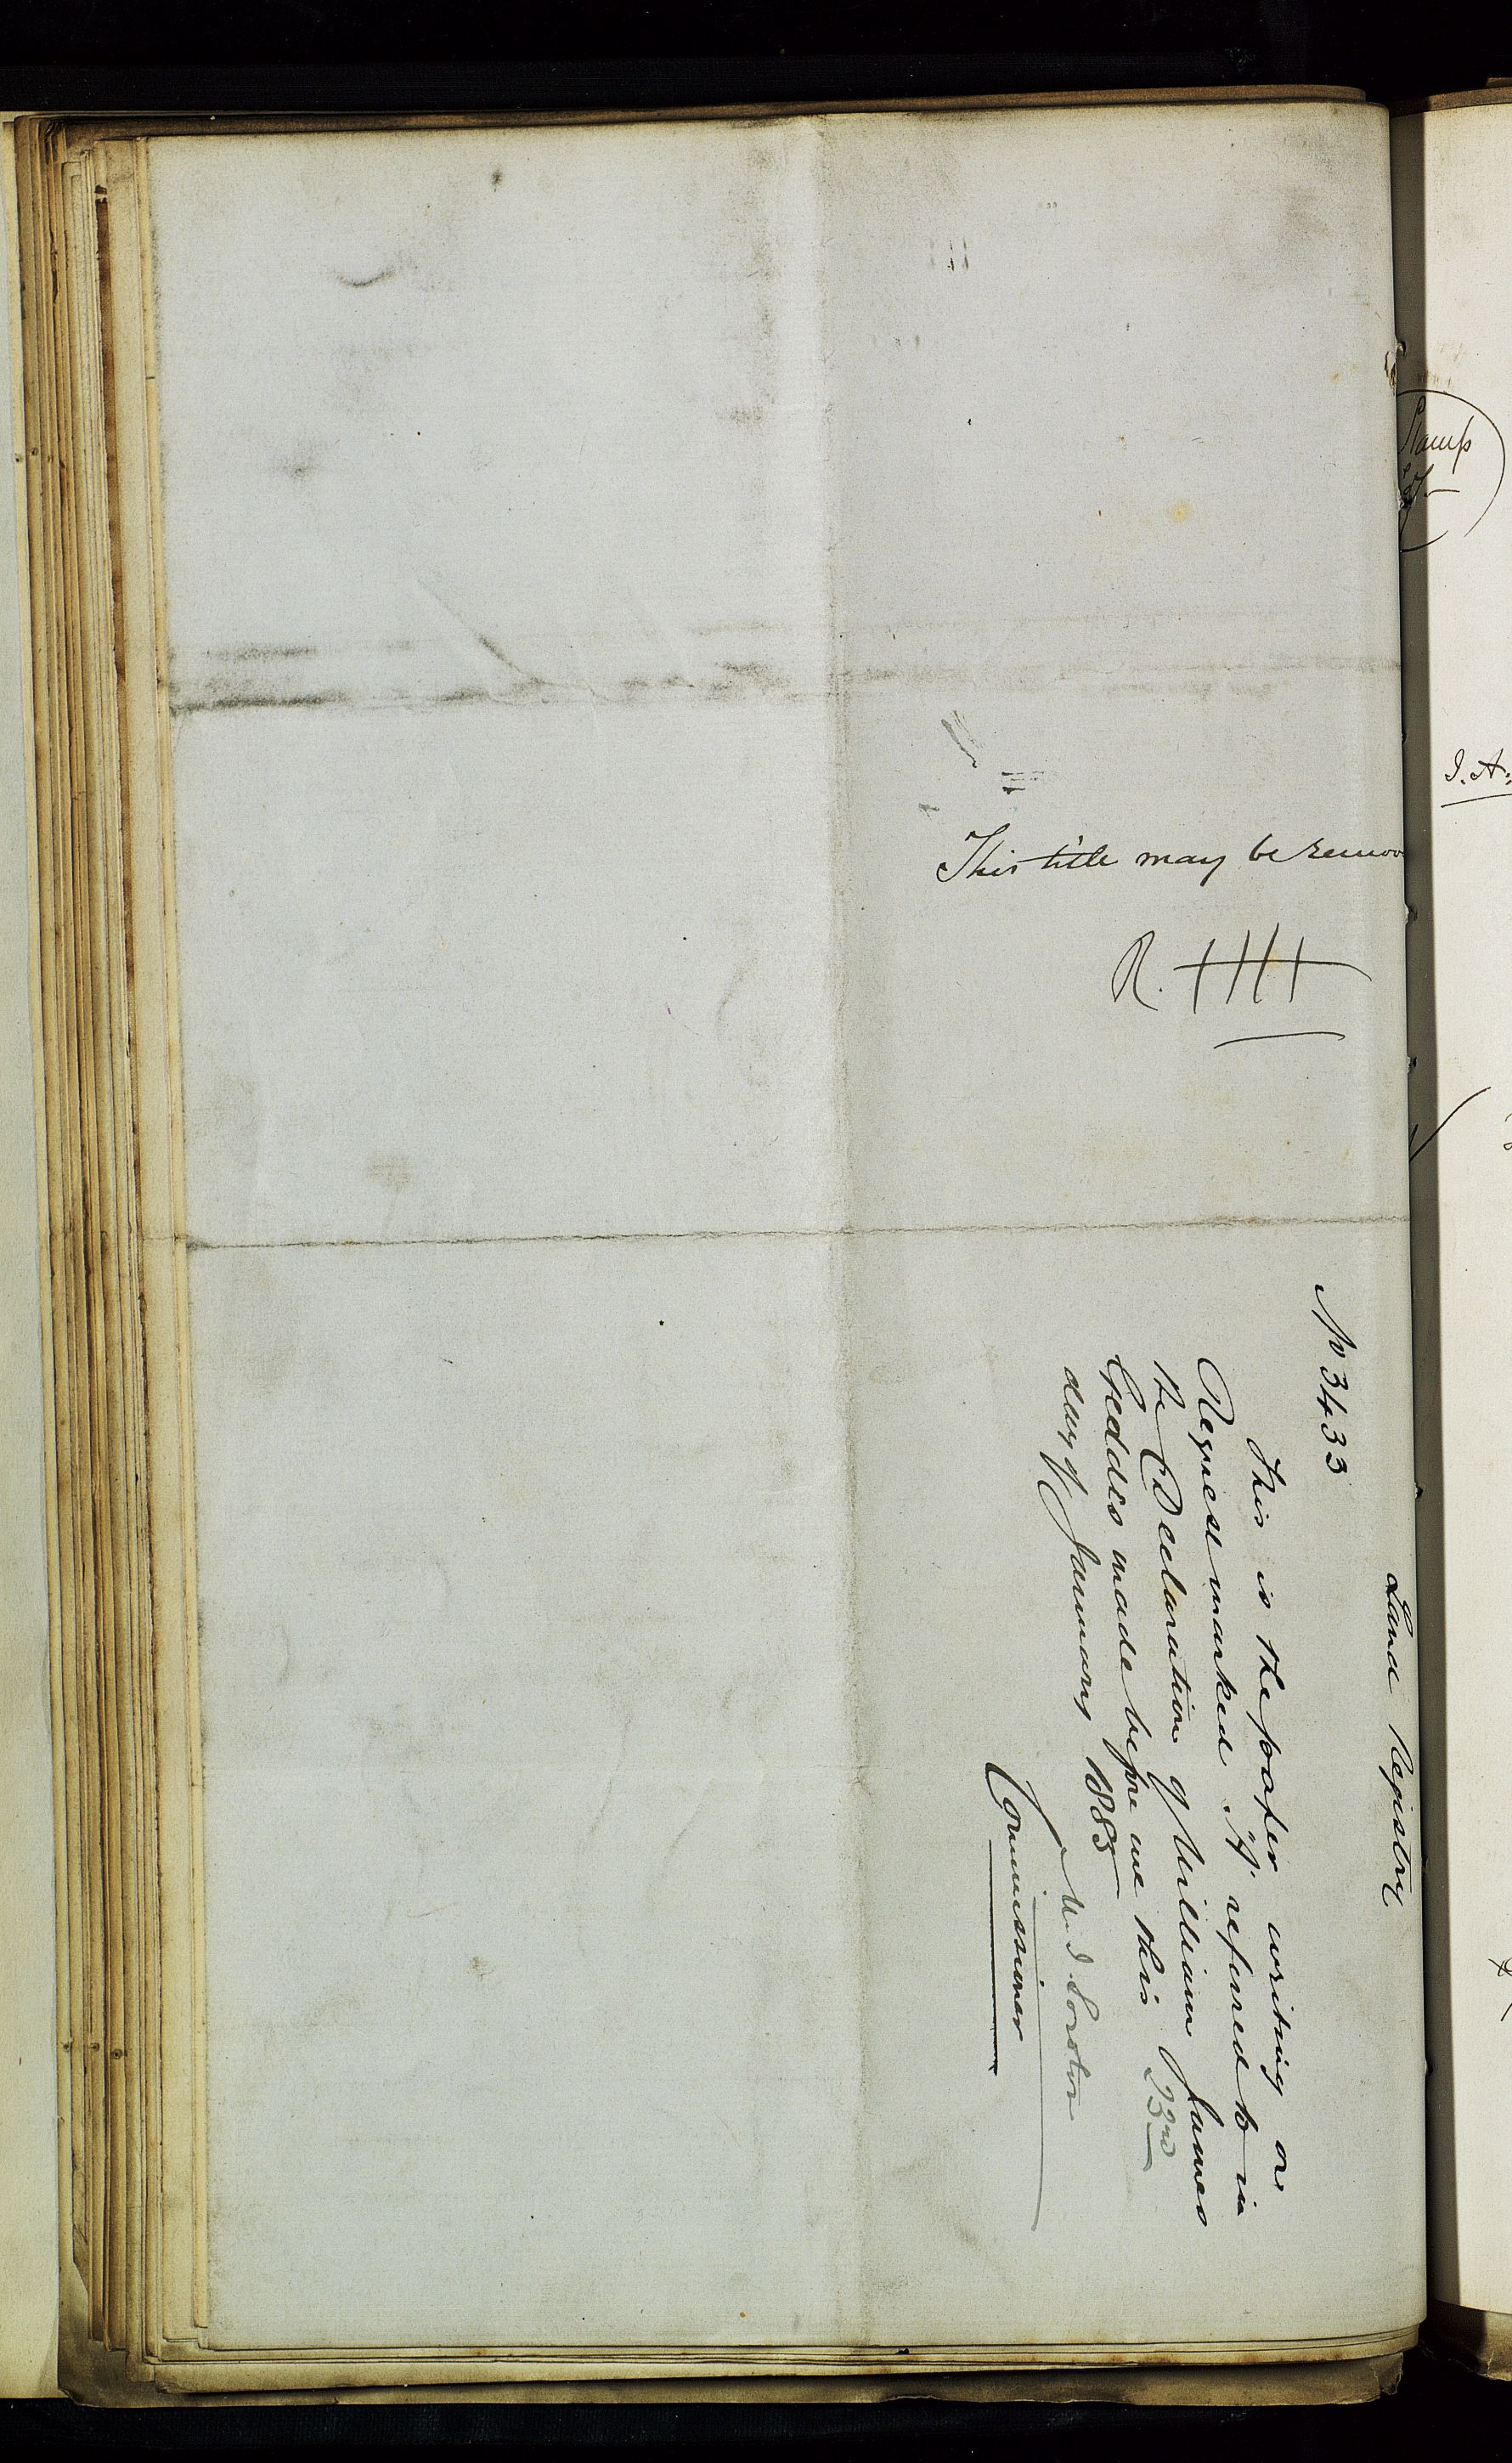 This title may be remov
R. HHH
Land Registry
No 3433
This is the paper writing or
Request marked "A" referred to in
the Declaration of William James
Geddes made before me this 23rd
day of January 1885
Commissioner
Stamp
I. A.